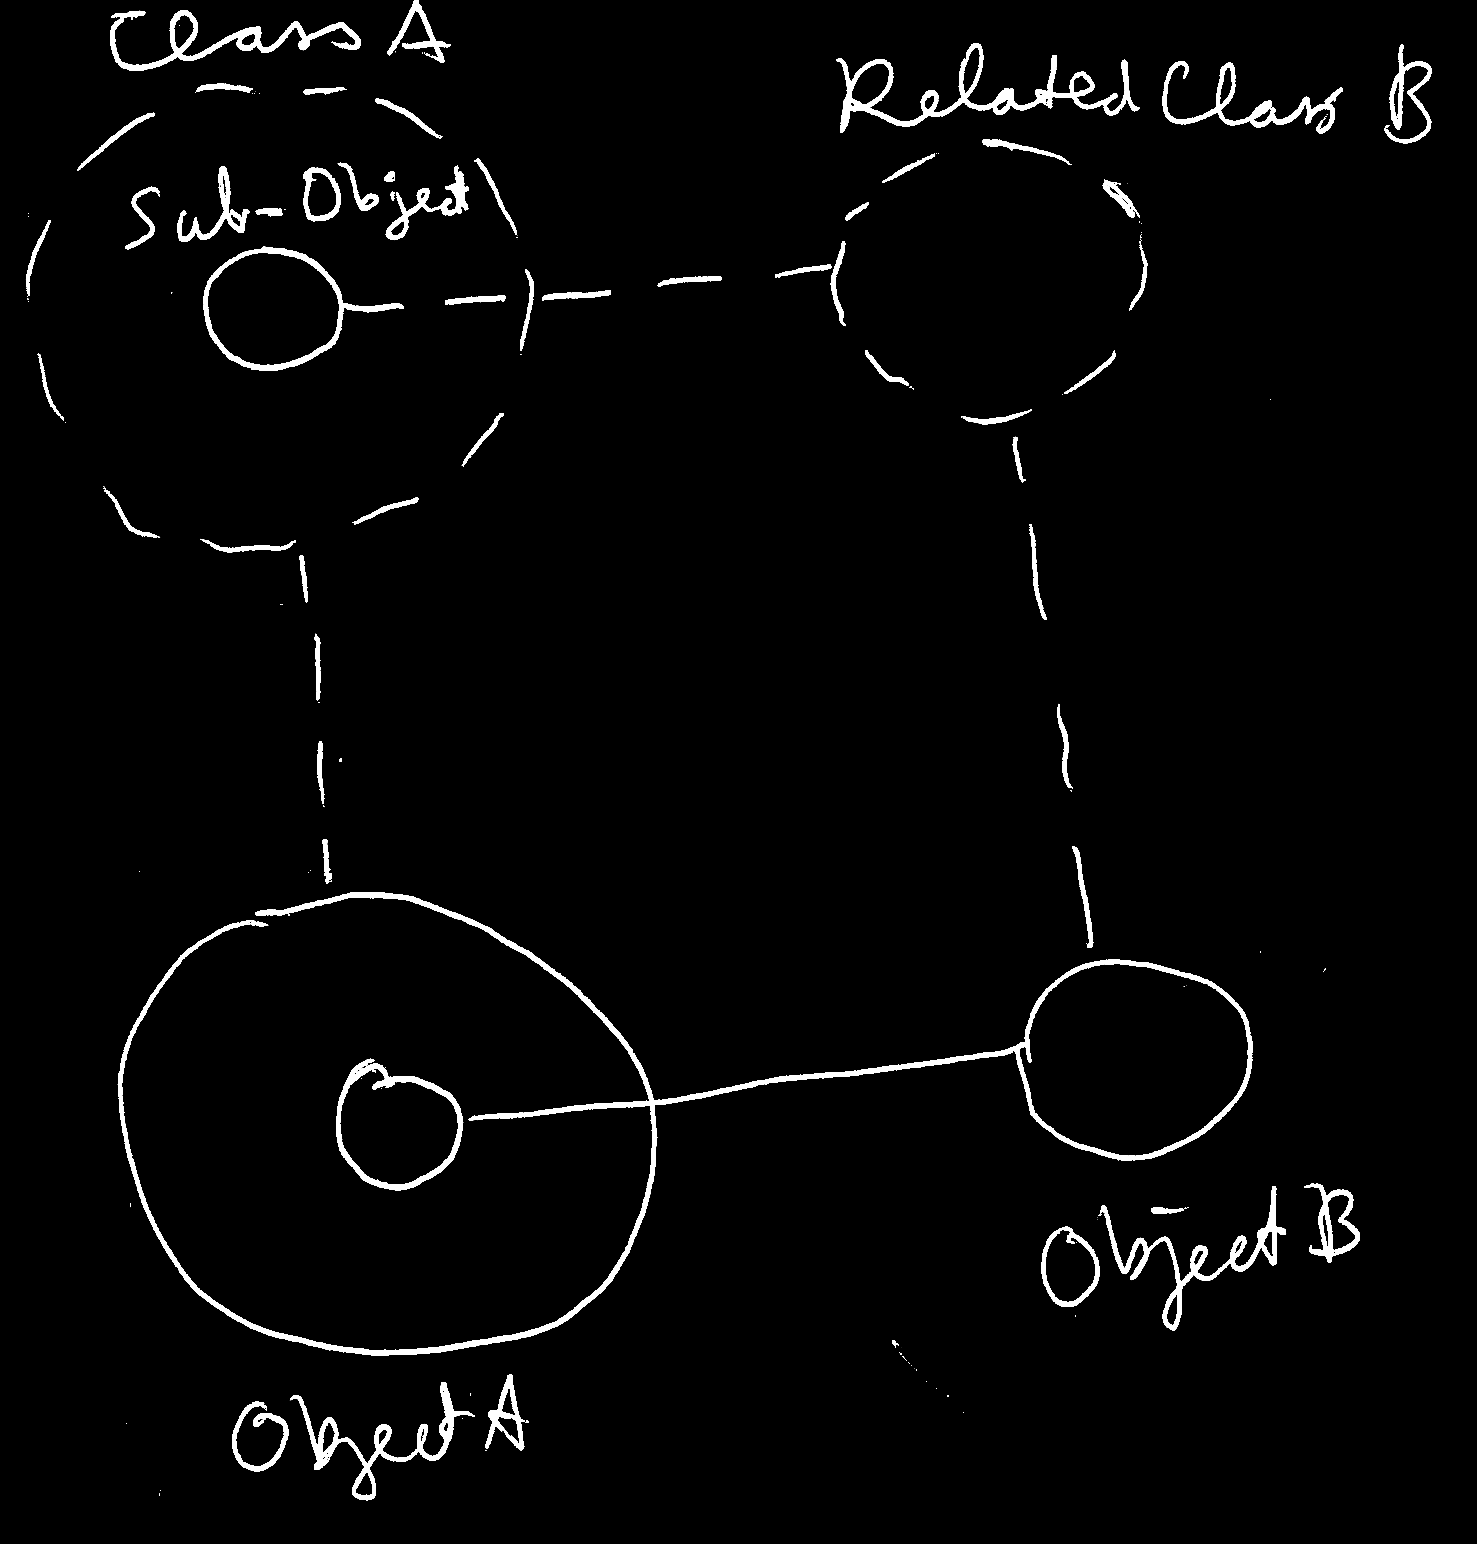 Class A
Related Class B
Sub-Object
Object B
Object A